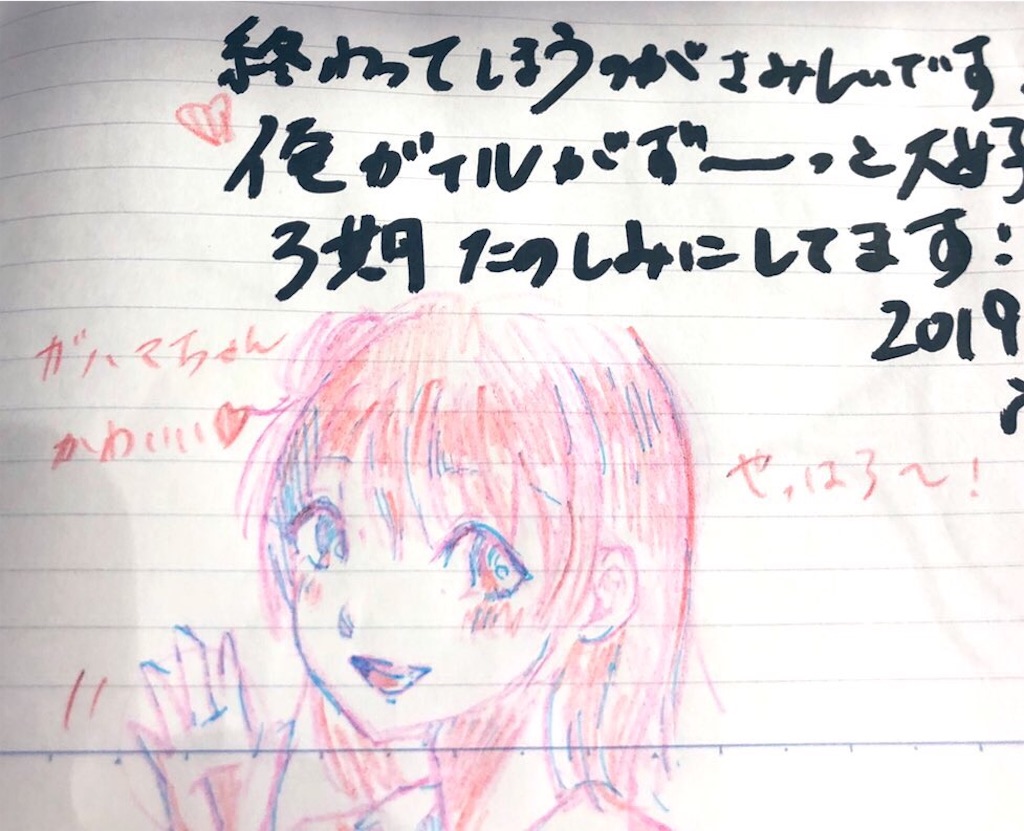 終わってしまうのがさみしいです
俺ガイルがずーっと大好
3期 たのしみにしてます!
2019
ガハマちゃん
かわいい♥
やっはろ〜!